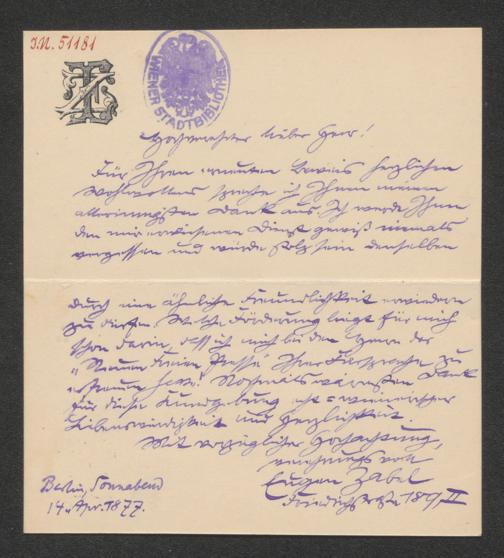 J.N. 51181
EZ
WIENER STADTBIBLIOTHEK
Hochverehrter lieber Herr!
Für Ihren erneuten Beweis herzlichen
Wohlwollens spreche ich Ihnen meinen
allerinnigsten Dank aus. Ich werde Ihnen
den mir erwiesenen Dienst gewiß niemals
vergessen und würde stolz sein denselben
durch eine ähnliche Freundlichkeit erwiedern
zu dürfen. Welche Förderung liegt für mich
schon darin, dass ich mich bei den Herren der
"Neuen Freien Presse" Ihrer Fürsprache zu
erfreuen habe! Nochmals wärmsten Dank
für diese Kundgebung echt=wienerischer
Liebenswürdigkeit und Herzlichkeit.
Mit vorzüglicher Hochachtung,
verehrungsvoll
Eugen Zabel
Berlin, Sonnabend
14. Apr. 1877.
Friedrichstr. 189, II